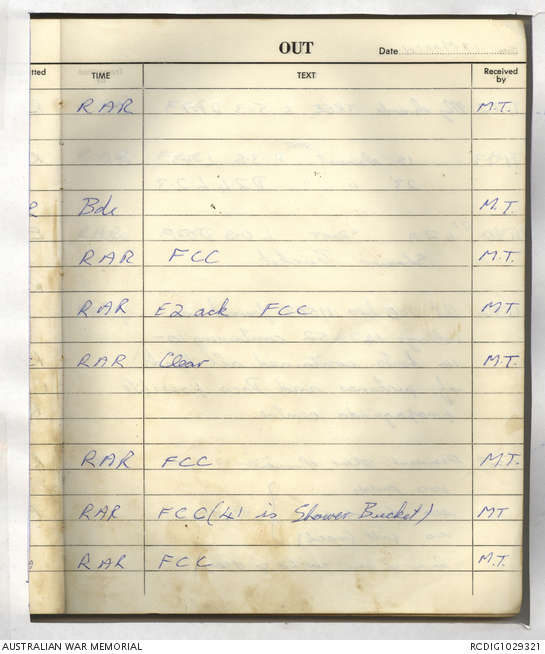 OUT
Date
tted TIME TEXT Received by
RAR M.T.
Bde M.T.
RAR FCC M.T.
RAR E2 ack FCC MT
RAR Clear M.T.
RAR FCC M.T.
RAR FCC (41 is Shower Bucket) MT
RAR FCC M.T.
AUSTRALIAN WAR MEMORIAL RCDIG1029321